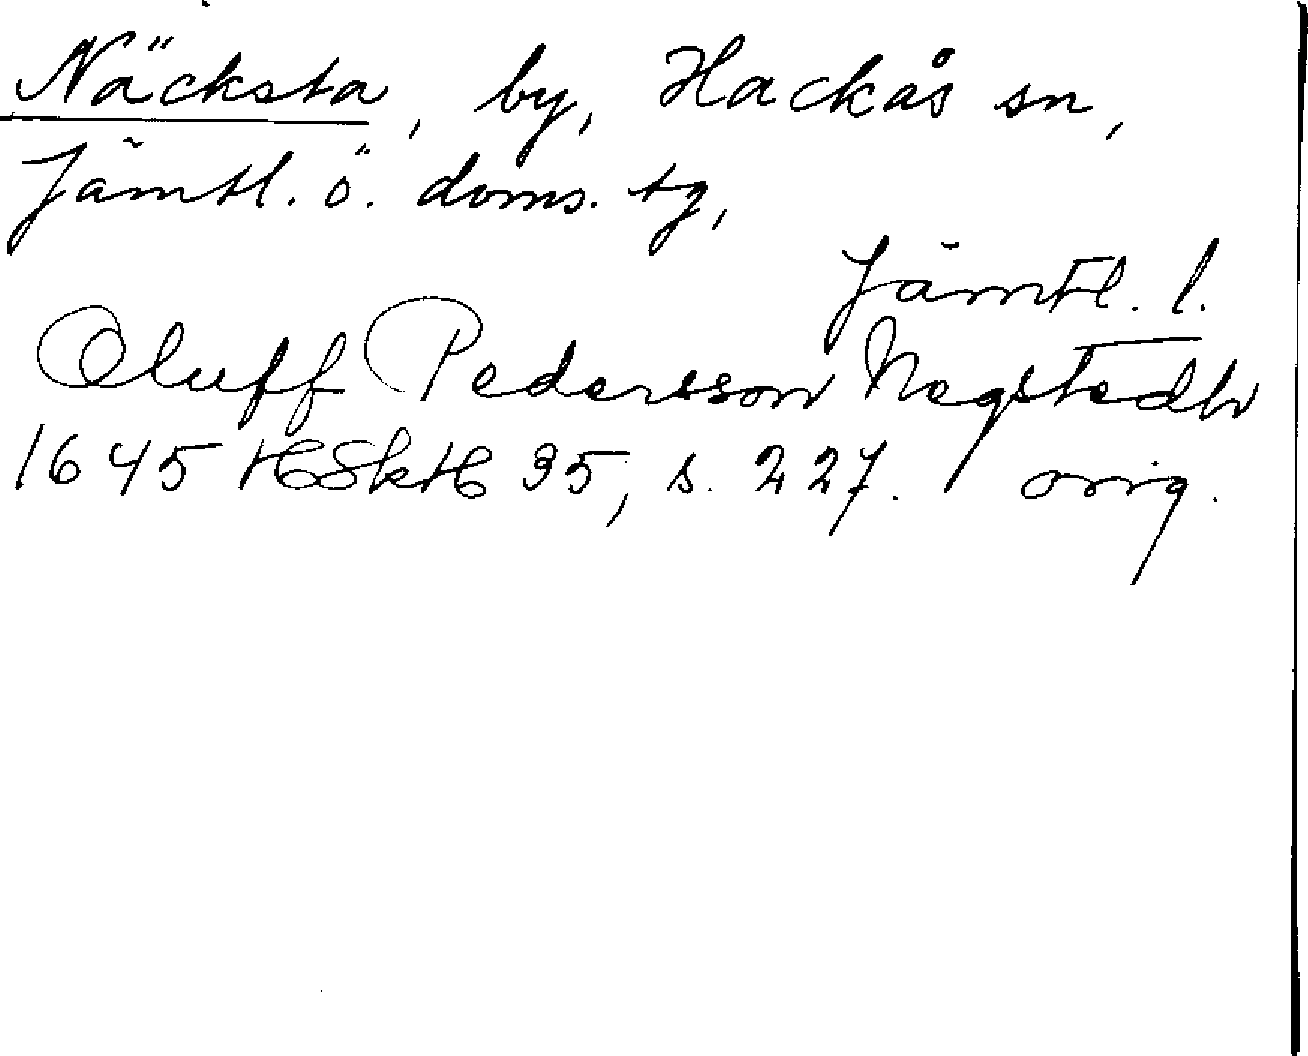 Näcksta, by, Hackås sn,
Jämtl. ö. doms. tg,
Jämtl. l.
Oluff Pedersson Negstedh
1645 HSkH 35, s. 227. orig.